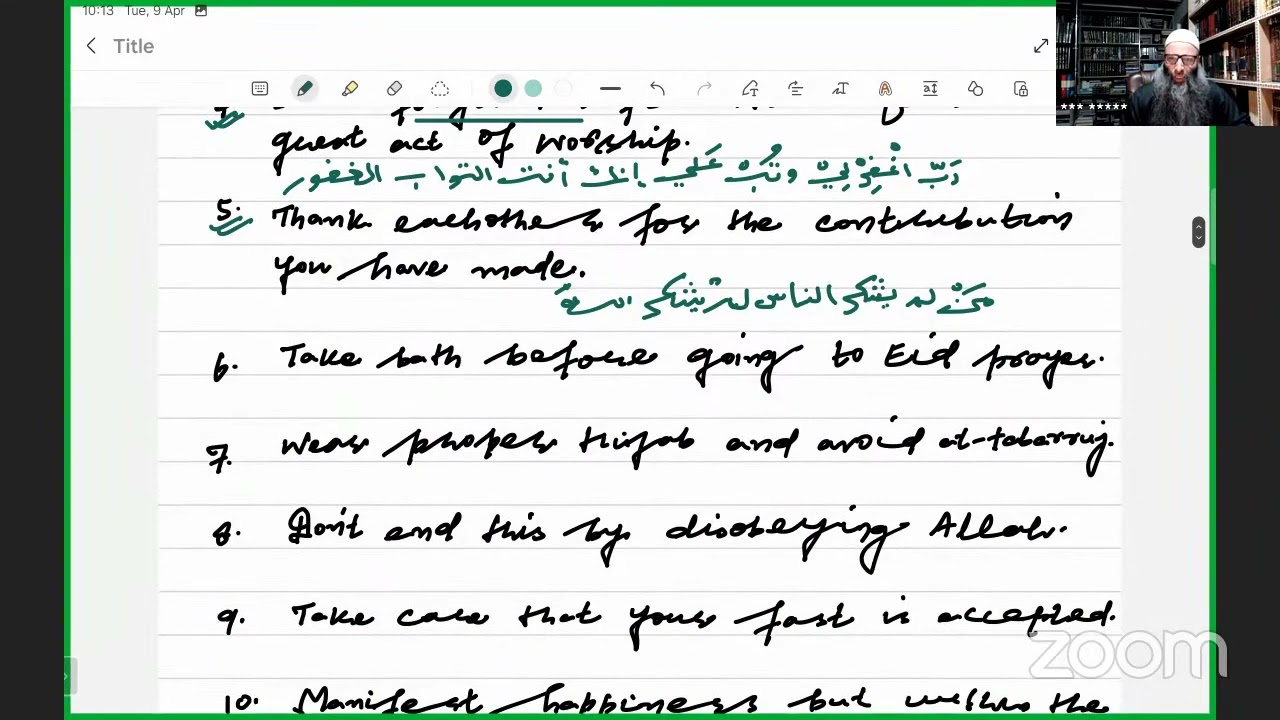 10:13 Tue, 9 Apr
Title
*** *****
great act of worship.
رَبِّ اغْفِرْ لِيْ وَتُبْ عَلَي إنك أنت التواب الغفور
5. Thank eachother for the contribution
you have made.
مَنْ لم يشكر الناس لم يشكر الله
6. Take bath before going to Eid prayer.
7. Wear proper Hijab and avoid at-tabarruj.
8. Don't end this by disobeying Allah.
9. Take care that your fast is accepted.
zoom
10. Manifest happiness but within the